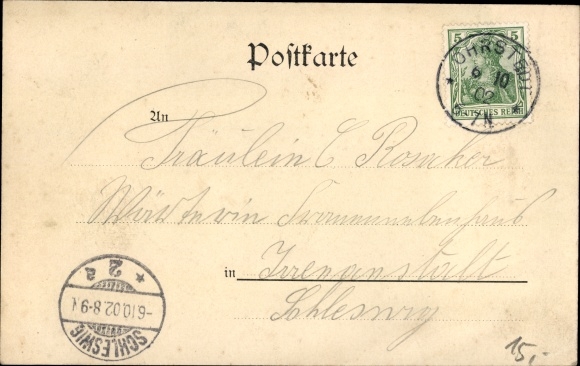 Postkarte
5 5
DEUTSCHES REICH
OHRSTEDT
6 10
02
5-7N
An
Fräulein C. Roscher
Wärterin
in Irrenanstalt
Schleswig
SCHLESWIG
-6.10.02.8-9
* 2 a
15,-